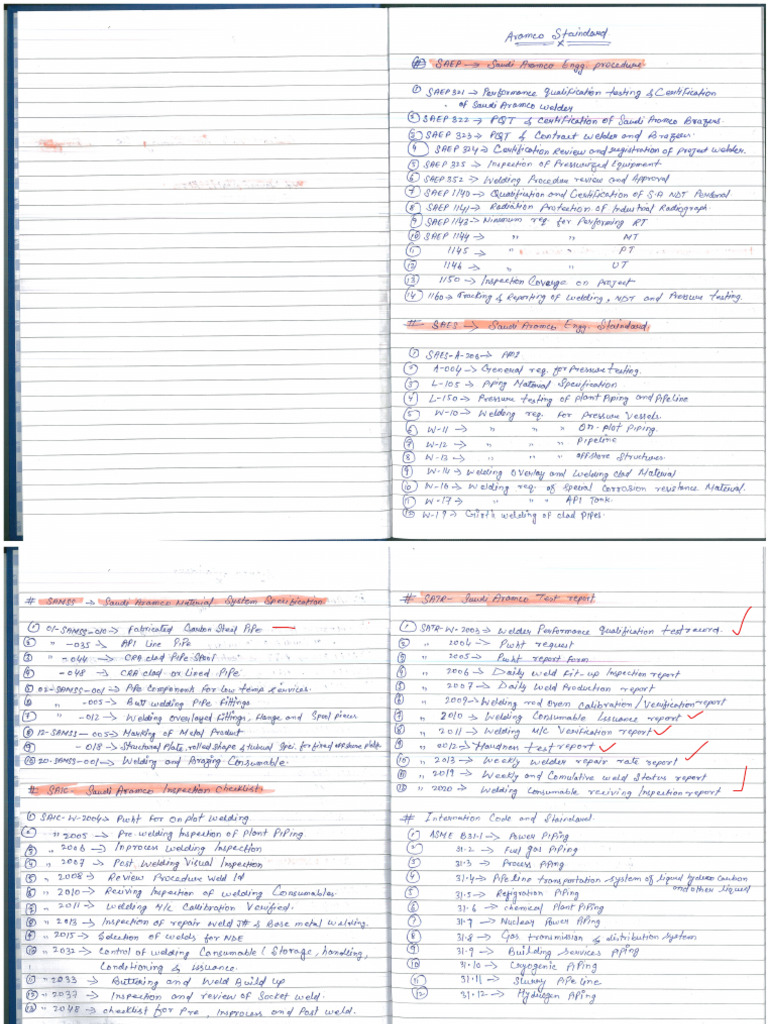 Aramco Staindard
x
# SAEP → Saudi Aramco Engg procedure
① SAEP 321 → Performance Qualification testing & Certification
of Saudi Aramco welder
② SAEP 322 → PQT & certification of Saudi Aramco Brazers.
③ SAEP 323 → PQT & Contract welder and Brazers.
④ SAEP 324 → Certification Review and registration of project welder.
⑤ SAEP 325 → Inspection of Pressurized Equipment.
⑥ SAEP 352 → Welding Procedure review and Approval
⑦ SAEP 1140 → Qualification and Certification of S.A NDT Personal
⑧ SAEP 1141 → Radiation Protection of Industrial Radiograph.
⑨ SAEP 1143 → Minimum req. for Performing RT
⑩ SAEP 1144 → " " MT
⑪ 1145 → " " PT
⑫ 1146 → " " UT
⑬ 1150 → Inspection Coverge on project
⑭ 1160 → Tracking & Reporting of welding, NDT and Pressure testing.
# SAES → Saudi Aramco Engg. Staindard.
① SAES-A-206 →
② A-004 → General req. for Pressure testing.
③ L-105 → Piping Material Specification
④ L-150 → Pressure testing of Plant Piping and Pipeline
⑤ W-10 → Welding req. for pressure vessels.
⑥ W-11 → " " " On-plot Piping.
⑦ W-12 → " " " Pipeline
⑧ W-13 → " " " offshore Structures.
⑨ W-14 → Welding Overlay and Welding Clad Material
⑩ W-16 → Welding req. of special Corrosion resistance Material.
⑪ W-17 → " " " API Tank.
⑫ W-19 → Girth welding of clad Pipes.
# SAMSS → Saudi Aramco Material System Specification
① 01-SAMSS-010 → Fabricated Carbon Steel Pipe
② " -035 → API Line Pipe
③ " -044 → CRA clad Pipe Spool
④ " -048 → CRA clad or Lined Pipe
⑤ 02-SAMSS-001 → Component for low temp services.
⑥ " -005 → Butt welding Pipe Fittings
⑦ " -012 → Welding overlayed Fittings, Flange and Spool pieces
⑧ 12-SAMSS-005 → Marking of Metal Product
⑨ -018 → Structural Plate, rolled shape & tubular Spec. for fixed offshore platfo
⑩ 20-SAMSS-001 → Welding and Brazing Consumable.
# SAIC - Saudi Aramco Inspection Checklist
① SAIC-W-2004 → Pwht For On plot Welding.
② " 2005 → Pre-welding Inspection of Plant Piping
③ " 2006 → Inprocess welding Inspection
④ " 2007 → Post. Welding Visual Inspection
⑤ " 2008 → Review Procedure Weld Id
⑥ " 2010 → Reciving Inspection of welding Consumables.
⑦ " 2011 → Welding M/c Callibration Verified.
⑧ " 2013 → Inspection of repair weld Jt# & Base metal welding.
⑨ " 2015 → Selection of welds for NDE
⑩ " 2032 → Control of welding Consumable (Storage, handling,
Conditioning & issuance.
⑪ " 2033 → Buttering and Weld Build up
⑫ " 2037 → Inspection and review of Socket weld.
⑬ " 2048 → checklist for Pre, Inprocess and Post weld.
# SATR - Saudi Aramco Test report
① SATR-W-2003 → Welder Performance Qualification test record.
② " 2004 → Pwht request
③ " 2005 → Pwht report form
④ " 2006 → Daily Weld Fit-up Inspection report
⑤ " 2007 → Daily Weld Production report
⑥ " 2009 → Welding rod Oven Calibration/Verification report
⑦ " 2010 → Welding Consumable Issuance report
⑧ " 2011 → Welding M/C Verification report
⑨ " 0012 → Hardness test report
⑩ " 2013 → Weekly welder repair rate report
⑪ " 2019 → Weekly and Comulative weld Status report
⑫ " 2020 → Welding Consumable reciving/Inspection report
# Internation Code and Staindard.
① ASME B31.1 → Power Piping
② 31.2 → Fuel gas Piping
③ 31.3 → Process piping
④ 31.4 → Pipeline transportation system of liquid hydro carbon
and other liquid
⑤ 31.5 → Refigration Piping
⑥ 31.6 → chemical Plant Piping
⑦ 31.7 → Nuclear Power Piping
⑧ 31.8 → Gas transmission & distribution system
⑨ 31.9 → Building services piping
⑩ 31.10 → Cryogenic Piping
⑪ 31.11 → Slurry Pipe line
⑫ 31.12 → Hydrogen Piping